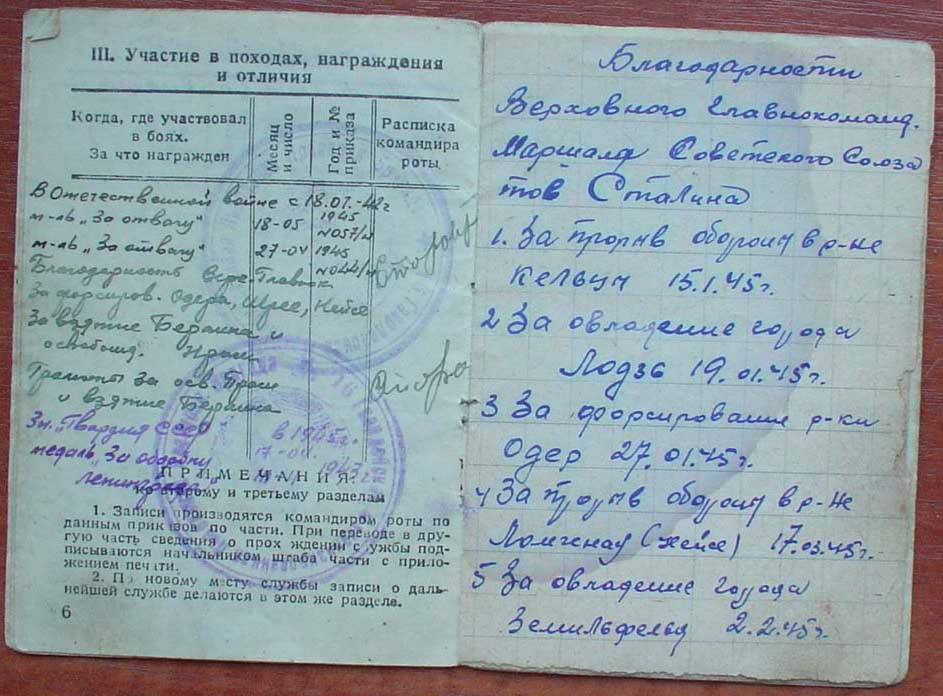 III. Участие в походах, награждения
и отличия
Когда, где участвовал
в боях.
За что награжден
Месяц
и число
Год и №
приказа
Расписка
командира
роты
В Отечественной войне с 18.01.-42г
м-ль „За отвагу" 18-05 1945 №057/н
м-ль „За отвагу" 27-04 1945 №044/н
Благодарность Верх. Главнок
За форсиров. Одера, Шрее, Нейсе
За взятие Берлина и
освобожд. Праги
Грамоты За осв. Праги
и взятие Берлина
Зн. „Гвардия СССР в 1945г.
медаль „За оборону 17-04 1947г
Ленинграда"
ПРИМЕЧАНИЯ:
ко второму и третьему разделам
1. Записи производятся командиром роты по
данным приказов по части. При переводе в дру-
гую часть сведения о прохождении службы под-
писываются начальником штаба части с прило-
жением печати.
2. По новому месту службы записи о даль-
нейшей службе делаются в этом же разделе.
6
Благодарности
Верховного Главнокоманд.
Маршала Советского Союза
тов Сталина
1. За прорыв обороны в р-не
Кельцы 15.1.45г.
2 За овладение города
Лодзь 19.01.45г.
3 За форсирование р-ки
Одер 27.01.45г.
4 За прорыв обороны в р-не
(Нейсе) 17.03.45г.
5 За овладение города
Земильфельд 2.2.45г.